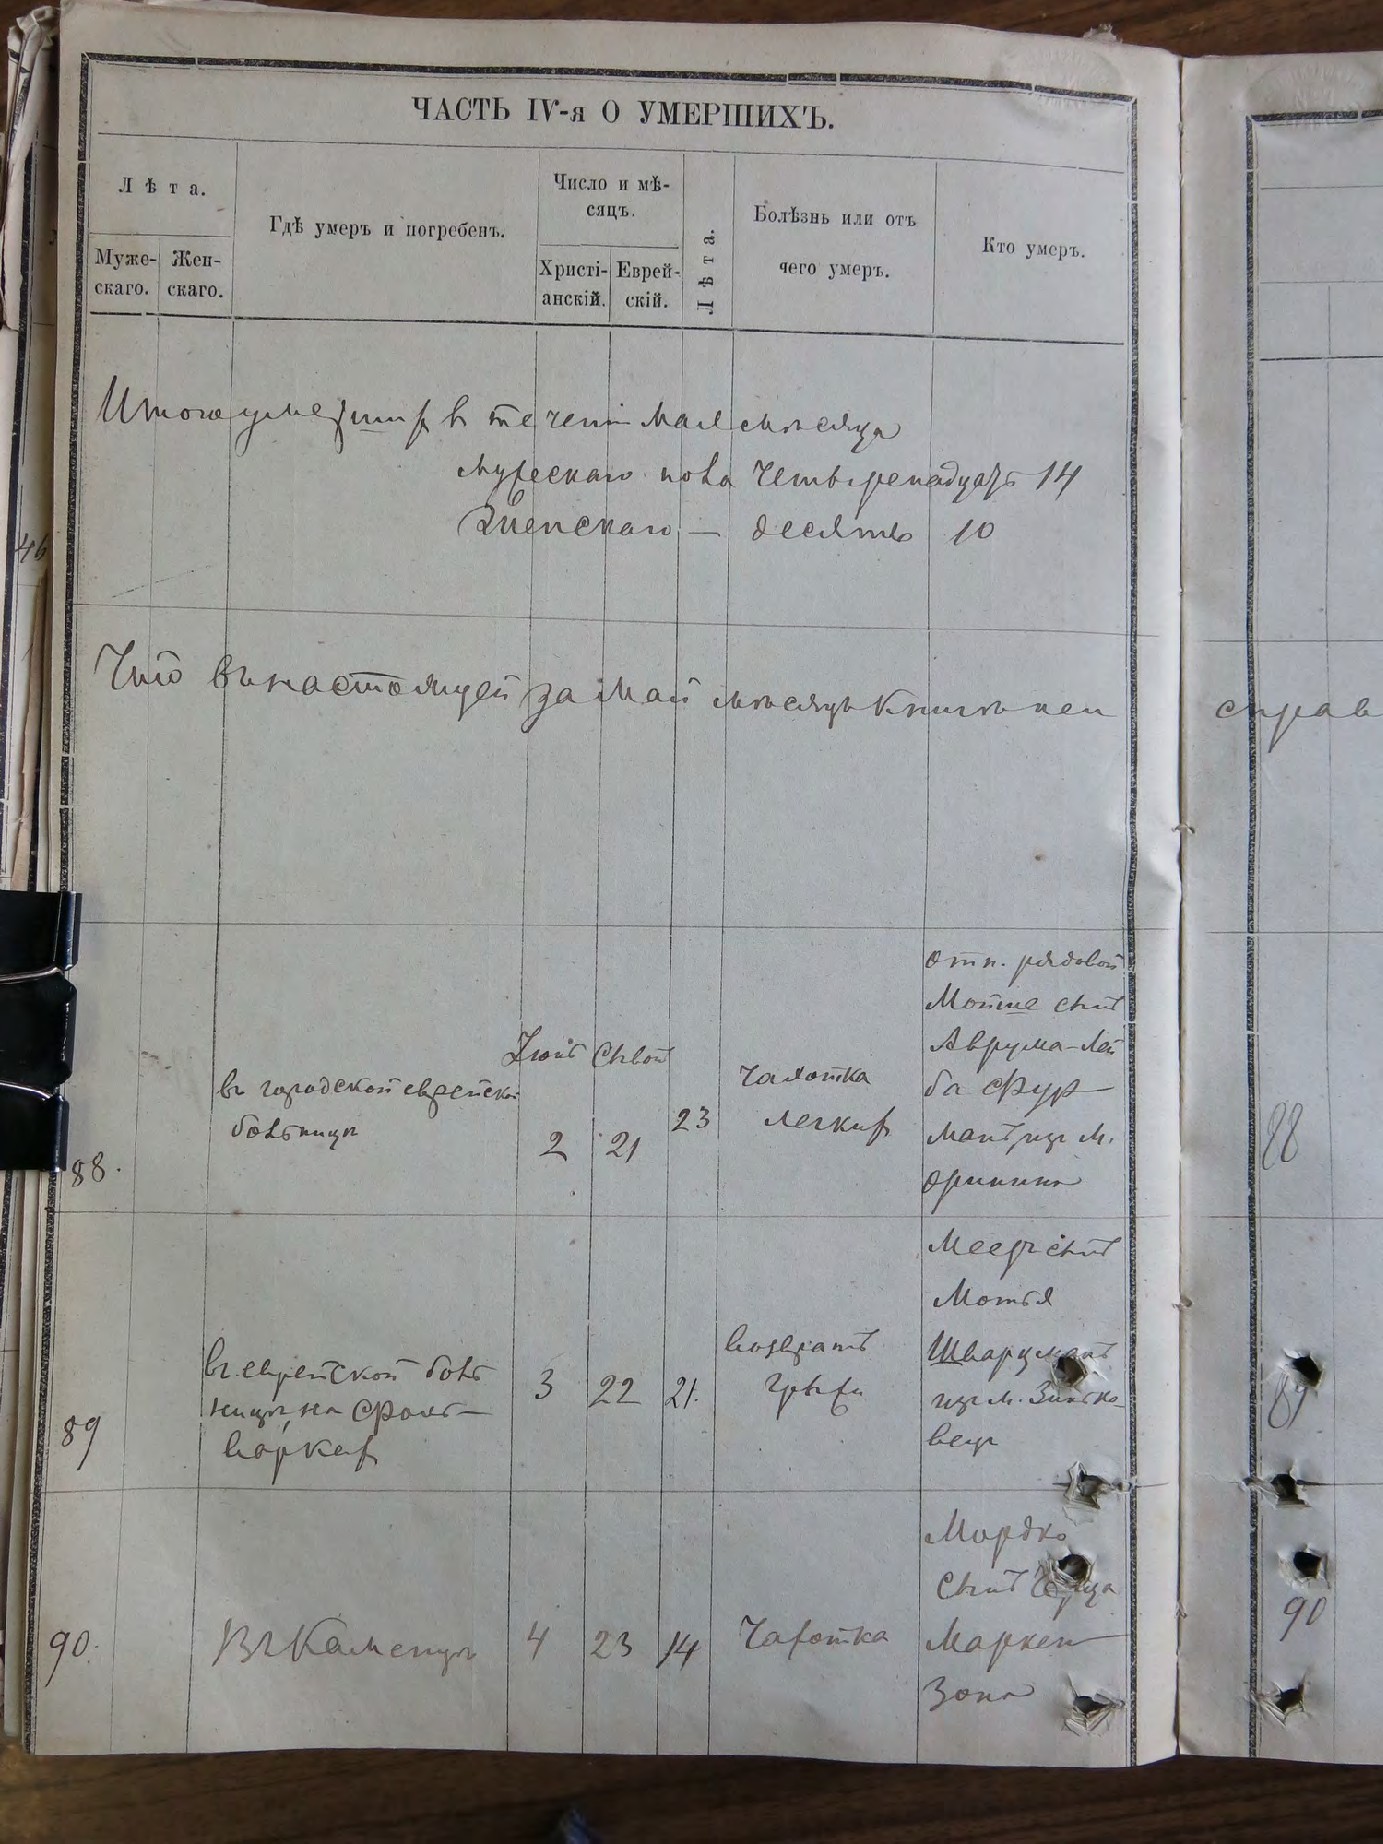 ЧАСТЬ IV-я О УМЕРШИХЪ.
Лѣта.
Муже-
скаго.
Жен-
скаго.
Гдѣ умеръ и погребенъ.
Число и мѣ-
сяцъ.
Христі-
анскій.
Еврей-
скій.
Лѣта.
Болѣзнь или отъ
чего умеръ.
Кто умеръ.
Итого умершихъ в течении Мая мѣсяца
мужескаго пола Четырнадцать 14
Женскаго — десять 10
46
Что въ настоящей за Май мѣсяцъ Книгѣ
справ
88.
въ городской еврейской
больницѣ
2
21
23
Чахотка
легкихъ
отп. рядовой
сынъ
Аврума-Лей
ба Фур-
манъ изъ м.
88
89
въ еврейской боль
ницѣ на Фоль-
варкахъ
3
22
21.
грыжи
Мееръ сынъ
Мотья
Шварцманъ
изъ м. Зинько-
вецъ
89
90.
Въ Каменцѣ
4
23
14
Чахотка
Мордко
сынъ
Маркен-
зона
90